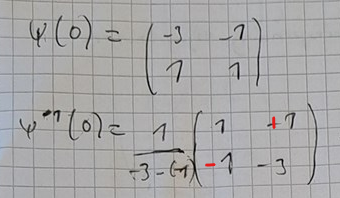 ψ(0) = ( -3 -1
1 1 )
ψ⁻¹(0) = 1/(-3-(-1)) ( 1 +1
-1 -3 )